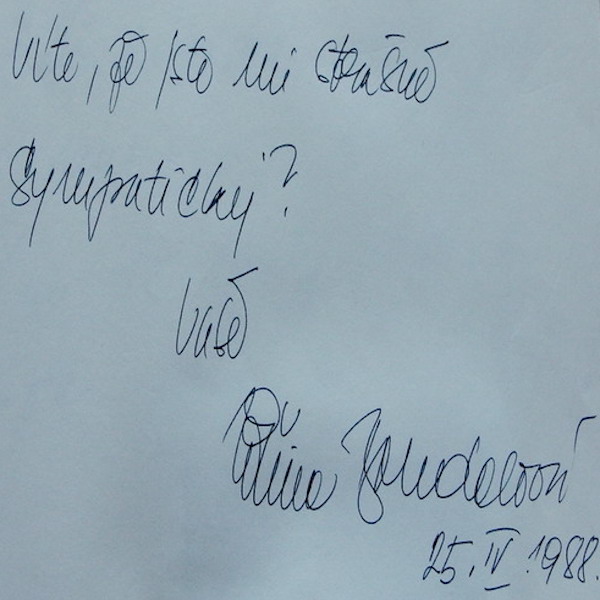 Víte, že jste mi strašně
sympatický?
Vaše
Jiřina Bohdalová
25. IV. 1988.